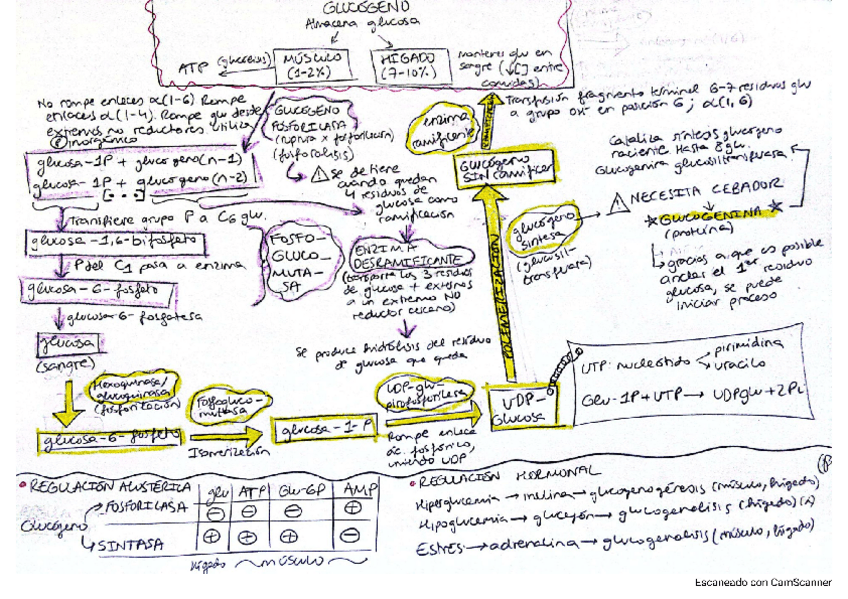 GLUCÓGENO
Almacena glucosa
ATP (glucólisis)
MÚSCULO
(1-2%)
HÍGADO
(7-10%)
mantener glu en
sangre (↓[] entre
comidas)
No rompe enlaces α(1-6) Rompe
enlaces α(1-4). Rompe glu desde
extremos no reductores utiliza
Ⓟ inorgánico
GLUCÓGENO
FOSFORILASA
(ruptura x fosforilación)
(fosforolisis)
glucosa-1P + glucógeno(n-1)
glucosa-1P + glucógeno(n-2)
[...]
⚠ Se detiene
cuando quedan
4 residuos de
glucosa como
ramificación
Transfiere grupo P a C6 glu.
glucosa-1,6-bifosfato
P del C1 pasa a enzima
glucosa-6-fosfato
FOSFO-
GLUCO-
MUTA-
SA
ENZIMA
DESRAMIFICANTE
(transporta los 3 residuos
de glucosa + externos
a un extremo NO
reductor cercano)
Se produce hidrólisis del residuo
de glucosa que queda
glucosa-6-fosfatasa
glucosa
(sangre)
Hexoquinasa/
glucoquinasa
(fosforilación)
glucosa-6-fosfato
Fosfogluco-
mutasa
Isomerización
glucosa-1-P
UDP-glu-
pirofosforilasa
Rompe enlace
ác. fosfórico,
uniendo UDP
UDP-
Glucosa
UTP: nucleótido
pirimidina
uracilo
Glu-1P+UTP → UDPglu+2Pi
POLIMERIZACIÓN
glucógeno
sintasa
(glucosil-
transferasa)
GLUCÓGENO
SIN RAMIFICAR
enzima
ramificante
Transfusión fragmento terminal 6-7 residuos glu
a grupo OH⁻ en posición 6; α(1,6)
Cataliza síntesis glucógeno
naciente hasta 8 glu.
Glucogenina glucosiltransferasa
⚠ NECESITA CEBADOR
★ GLUCOGENINA ★
(proteína)
gracias a que es posible
anclar el 1er residuo
glucosa, se puede
iniciar proceso
• REGULACIÓN ALOSTÉRICA
glu ATP Glu-6P AMP
Glucógeno
FOSFORILASA ⊖ ⊖ ⊖ ⊕
SINTASA ⊕ ⊕ ⊕ ⊖
hígado músculo
• REGULACIÓN HORMONAL
Hiperglucemia → insulina → glucogenogénesis (músculo, hígado)
Hipoglucemia → glucagón → glucogenolisis (hígado)
Estrés → adrenalina → glucogenolisis (músculo, hígado)
Escaneado con CamScanner